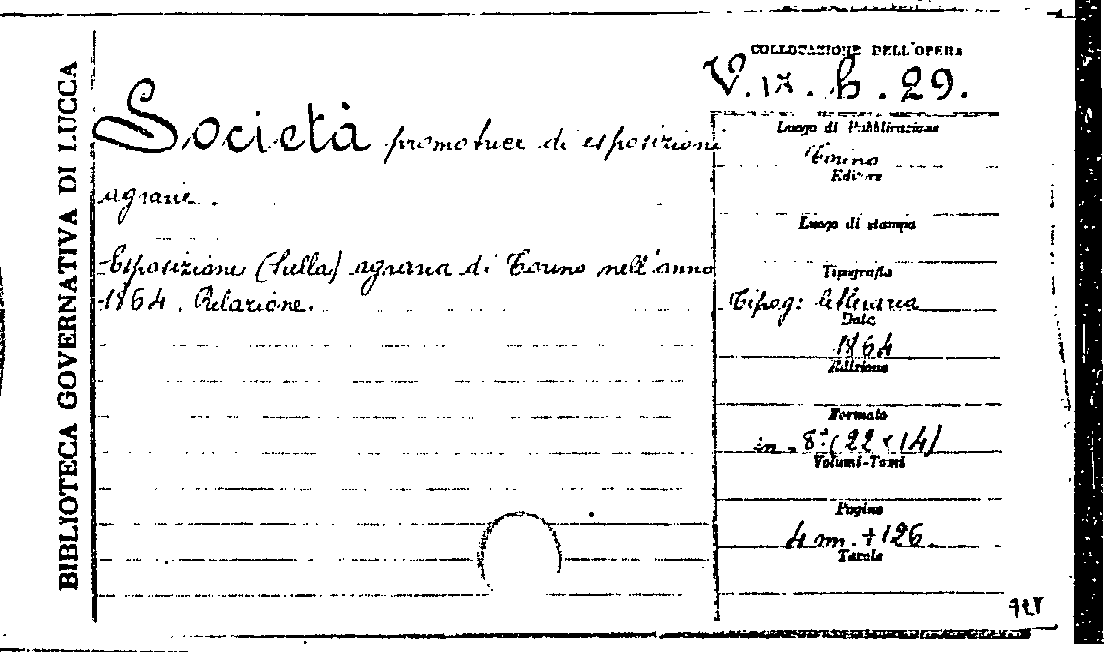 BIBLIOTECA GOVERNATIVA DI LUCCA
COLLOCAZIONE DELL'OPERA
V. 17. b. 29.
Società promotrice di esposizioni
agrarie.
Esposizione (Sulla) agraria di Torino nell'anno
1864. Relazione.
Luogo di Pubblicazione
Torino
Editore
Luogo di stampa
Tipografia
Tipog: letteraria
Data
1864
Edizione
Formato
in-8° (22 x 14)
Volumi-Tomi
Pagine
4 nn. + 126
Tavole